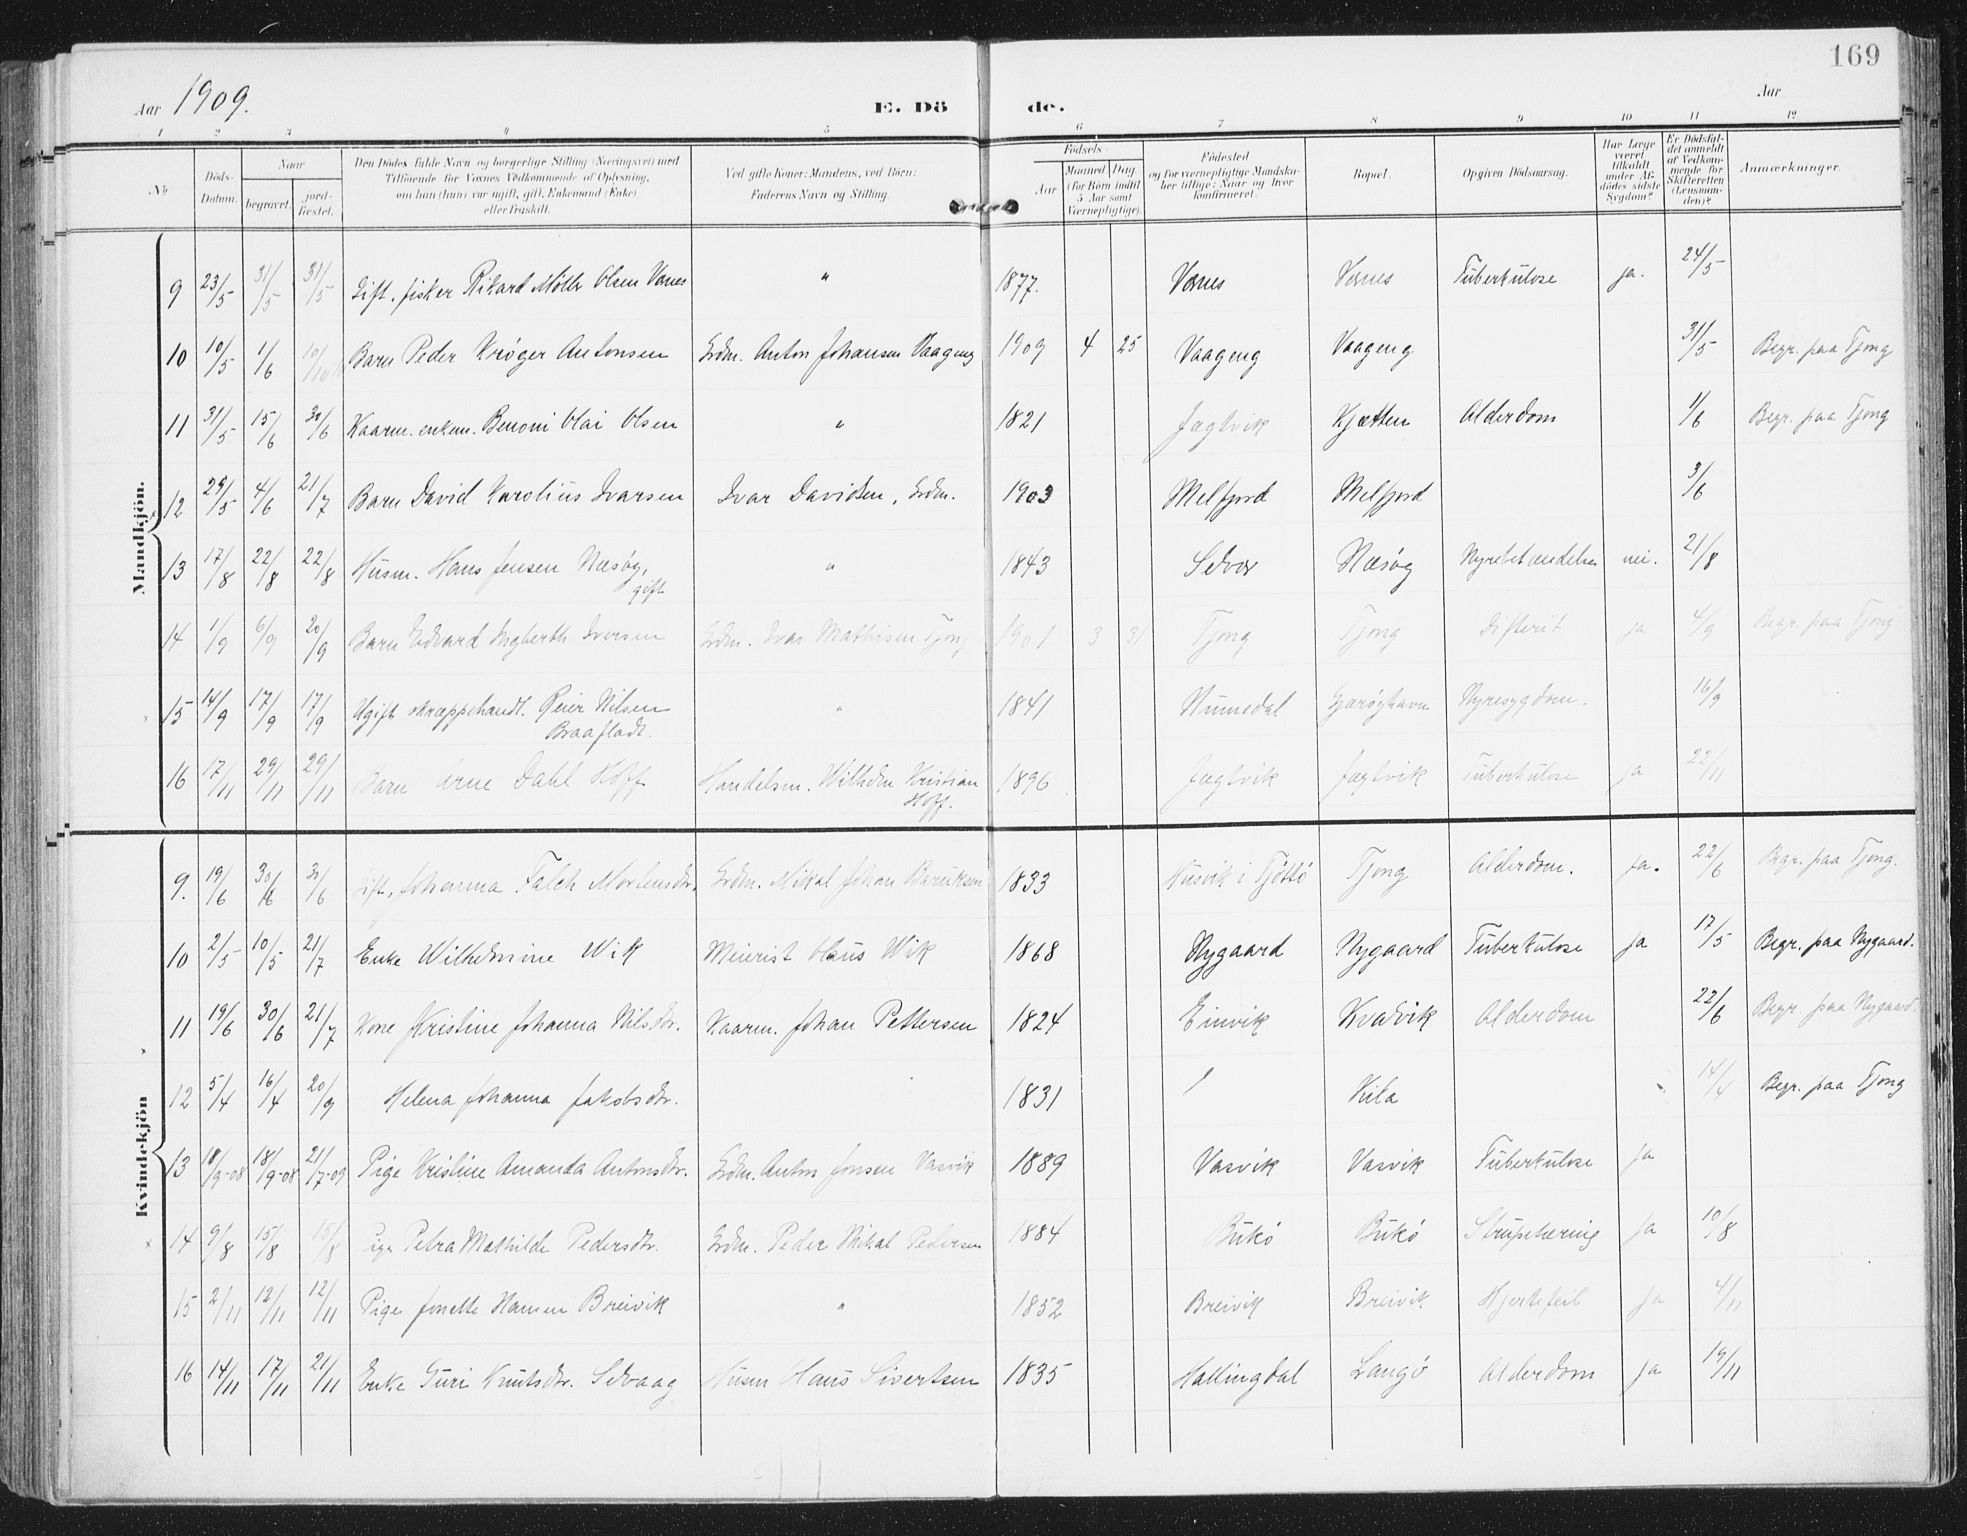 169
Aar 1909. E. Dö de. Aar
1 2 3 4 5 6 7 8 9 10 11 12
No
Döds-Datum.
Naar
begravet.
jord-fæstet.
Den Dödes fulde Navn og borgerlige Stilling (Næringsvei) med
Tilföiende for Voxnes Vedkommende af Oplysning,
om han (hun) var ugift, gift, Enkemand (Enke)
eller fraskilt.
Ved gifte Koner: Mandens, ved Börn:
Faderens Navn og Stilling.
Födsels-
Aar
Maaned Dag
(for Börn indtil 5 Aar samt Værnepligtige).
Födested
og for værnepligtige Mandska-
ber tillige: Naar og hvor
konfirmeret.
Bopæl.
Opgiven Dödsaarsag.
Har Læge været tilkaldt under Af-dödes sidste Sygdom?
Er Dödsfal-det anmeldt af Vedkom-mende for Skifteretten (Lensman-den)?
Anmærkninger.
Mandkjön.
9 23/5 31/5 31/5 Gift, fisker Rikard Møller Olsen Værnes " 1877. Værnes Værnes Tuberkulose ja. 24/5
10 10/5 1/6 Barn Peder Krøger Antonsen Grdm. Anton Johansen Vaageng 1909 4 25 Vaageng Vaageng 31/5 Begr. paa Tjong
11 31/5 15/6 30/6 Kaarm. enkem. Benoni Olai Olsen " 1821 Jægtvik Kjætten Alderdom 1/6 Begr. paa Tjong
12 29/5 4/6 21/7 Barn David Karolius Ivarsen Ivar Davidsen, Grdm. 1903 Melfjord Melfjord 3/6
13 17/8 22/8 22/8 Husm. Hans Jensen Næsøy, gift " 1843 Selvær Næsøy Nyrebetændelse nei. 21/8
14 1/9 6/9 20/9 Barn Edvard Ingberth Iversen Grdm. Ivar Mathisen Tjong 1901 3 31 Tjong Tjong Difterit ja 4/9 Begr. paa Tjong
15 14/9 17/9 17/9 Ugift skræppehandl. Reier Nilsen Braafladt. " 1841 Numedal Gjærøyhavn Nyresygdom. 16/9
16 17/11 29/11 29/11 Barn Arne Dahl Hoff Handelsm. Wilhelm Kristian Hoff. 1896 Jægtvik Jægtvik Tuberkulose ja 22/11
Kvindekjön
9. 19/6 30/6 30/6 Gift, Johanna Falch Mortensdtr. Grdm. Mikal Johan Baruksen 1833 Husvik i Tjøttø Tjong Alderdom. Ja. 22/6 Begr. paa Tjong.
10 2/5 10/5 21/7 Enke Wilhelmine Wik Meierist Olaus Wik 1868 Nygaard Nygaard Tuberkulose ja 17/5 Begr. paa Nygaard.
11 19/6 30/6 21/7 Kone Kristine Johanna Nilsdtr. Kaarm. Johan Pettersen 1824 Einvik Kvalvik Alderdom 22/6 Begr. paa Nygaard.
12 5/4 16/4 20/9 Helena Johanna Jakobsdtr. 1831 Kila 14/4 Begr. paa Tjong
13 18/9-08 18/9-08 21/7-09 Pige Kristine Amanda Antonsdtr. Grdm. Anton Jensen Vasvik 1889 Vasvik Vasvik Tuberkulose ja
14 9/8 15/8 15/8 Pige Petra Mathilde Pedersdtr. Grdm. Peder Mikal Pedersen 1884 Bukø Bukø Strupehering ja 10/8
15 2/11 12/11 12/11 Pige Jonette Hansen Breivik " 1852 Breivik Breivik Hjertefeil ja 4/11
16 14/11 17/11 21/11 Enke Guri Knutsdtr. Selvaag Husm Hans Sivertsen 1835 Hallingdal Langø Alderdom ja 19/11